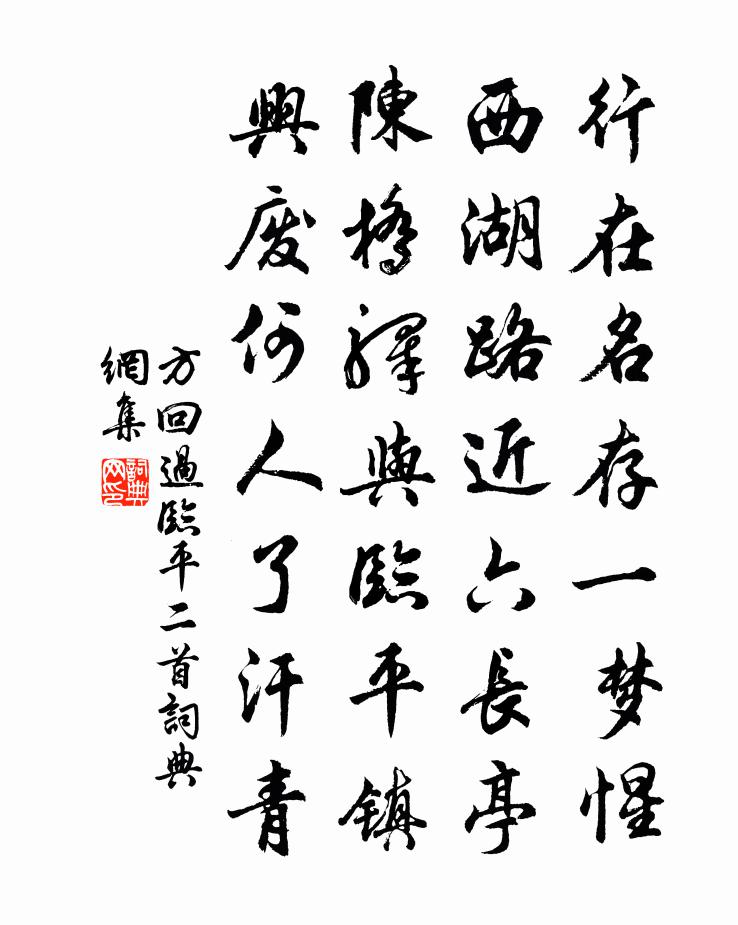 行在名存一梦惺
西湖路近六長亭
陳橋驛與臨平鎮
興废何人了汗青
方回過臨平二首詞典
網集
詞典网印